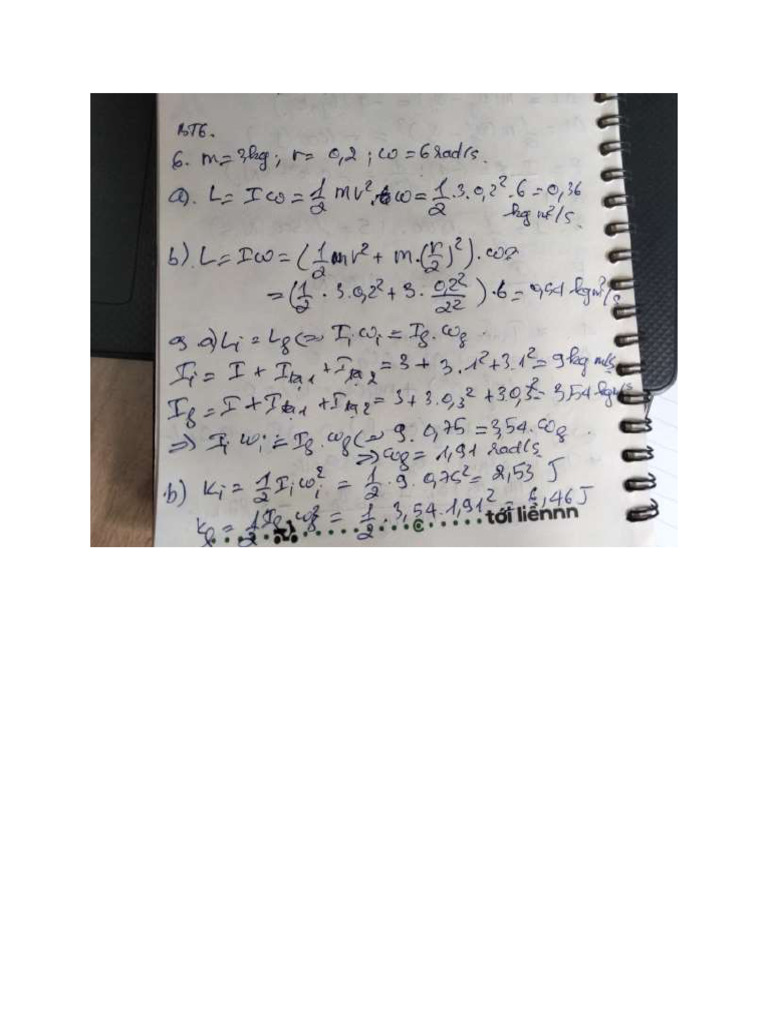 BT6.
6. m = 3kg ; r = 0,2 ; ω = 6 rad/s.
a). L = Iω = 1/2 mr². ω = 1/2 .3.0,2².6 = 0,36
kg m²/s.
b). L = Iω = (1/2 mr² + m.(r/2)²).
= (1/2 . 3.0,2² + 3. 0,2²/2²).6 = 0,54 kgm²/s
9 a) Li = Lf <=> Ii ωi = If. ωf.
Ii = I + I 1 + I 2 = 3 + 3.1² + 3.1² = 9 kg
If = I + I 1 + I 2 = 3 + 3.0,3² + 3.0,3² = 3,54
=> Ii ωi = If. ωf <=> 9. 0,75 = 3,54. ωf
=> ωf = 1,91 rad/s
b) Ki = 1/2 Ii ωi² = 1/2 . 9. 0,75² = 2,53 J
Kf = 1/2 If ωf² = 1/2 . 3,54. 1,91² = 6,46 J
tới liềnnn